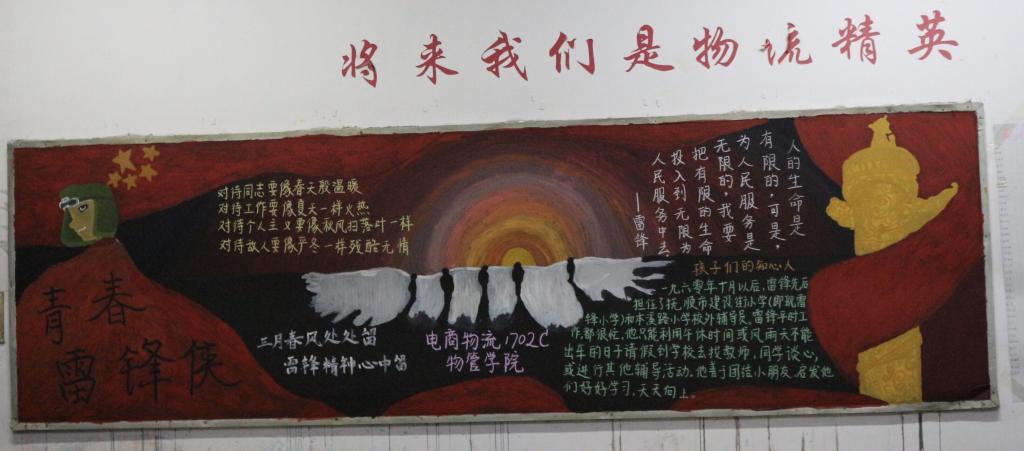 将来我们是物流精英
对待同志要像春天般温暖
对待工作要像夏天一样火热
对待个人主义要像秋风扫落叶一样
对待敌人要像严冬一样残酷无情
人的生命是
有限的,可是,
为人民服务是
无限的,我要
把有限的生命
投入到无限为
人民服务中去
——雷锋
青春
雷锋侠
三月春风处处留
雷锋精神心中留
电商物流1702C
物管学院
孩子们的知心人
一九六零年十月以后,雷锋先后
担任了抚顺市建设街小学(即现雷
锋小学)和本溪路小学校外辅导员,雷锋平时工
作都很忙,他只能利用午休时间或风雨天不能
出车的日子请假到学校去找教师,同学谈心,
或进行其他辅导活动。他善于团结小朋友,启发他
们好好学习,天天向上。